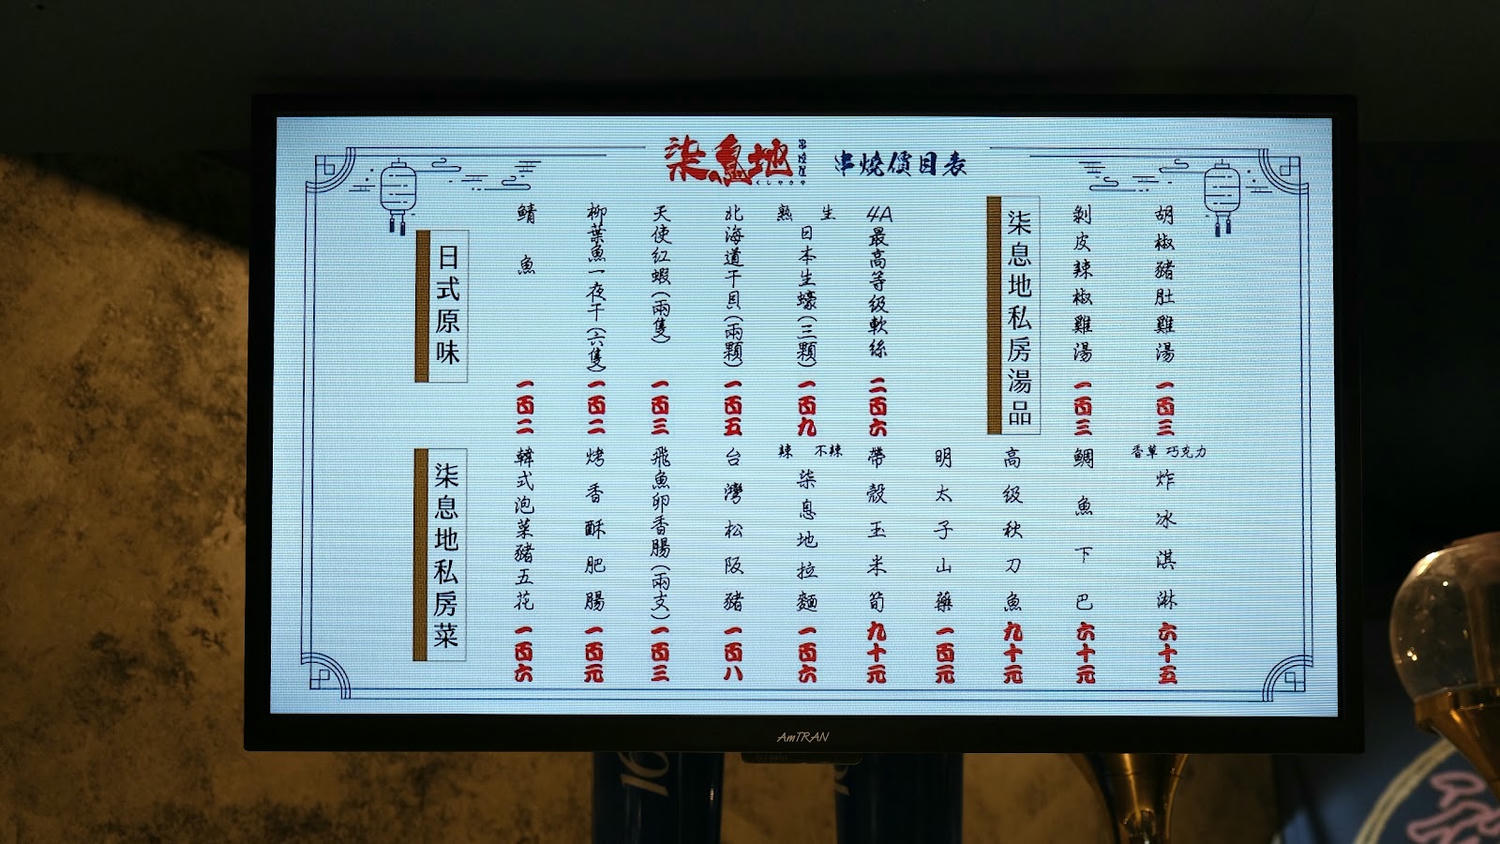 柒息地 串燒價目表
胡椒豬肚雞湯 一百三
剝皮辣椒雞湯 一百三
柒息地私房湯品
4A最高等級軟絲 二百六
生 熟 日本生蠔(三顆) 一百九
北海道干貝(兩顆) 一百五
天使紅蝦(兩隻) 一百三
柳葉魚一夜干(六隻) 一百二
鯖魚 一百二
日式原味
香草 巧克力 炸冰淇淋 六十五
鯛魚下巴 六十元
高級秋刀魚 九十元
明太子山藥 一百元
帶殼玉米筍 九十元
不辣 辣 柒息地拉麵 一百六
台灣松阪豬 一百八
飛魚卵香腸(兩支) 一百三
烤香酥肥腸 一百元
韓式泡菜豬五花 一百六
柒息地私房菜
AmTRAN
16